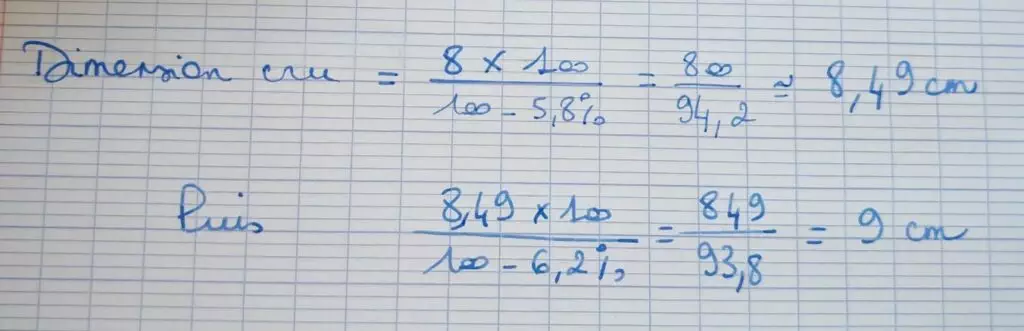 Dimension cru = 8 × 100 / 100 - 5,8% = 800 / 94,2 ≃ 8,49 cm
Puis 8,49 × 100 / 100 - 6,2% = 849 / 93,8 = 9 cm